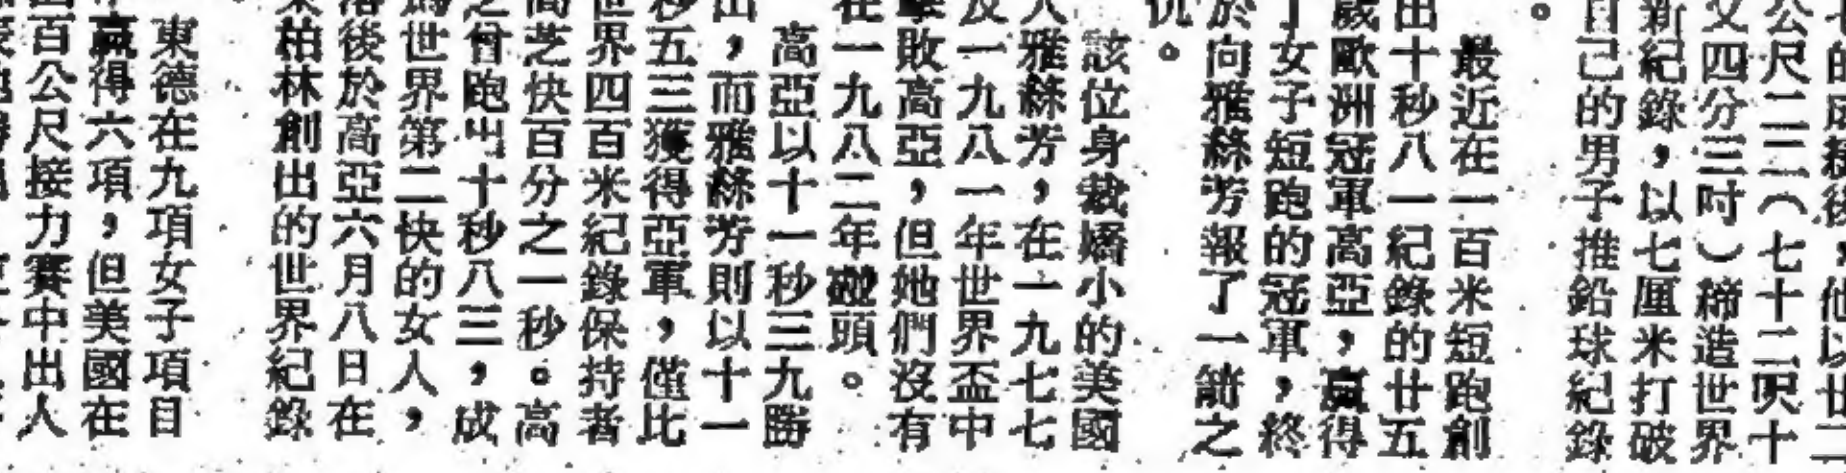 公尺二二（七十二呎十
又四分三吋）締造世界
新紀錄，以七厘米打破
自己的男子推鉛球紀錄
。
最近在一百米短跑創
出十秒八一紀錄的廿五
歲歐洲冠軍高亞，贏得
了女子短跑的冠軍，終
於向雅絲芳報了一箭之
仇。
該位身裁嬌小的美國
人雅絲芳，在一九七七
及一九八一年世界盃中
擊敗高亞，但她們沒有
在一九八二年碰頭。
高亞以十一秒三九勝
出，而雅絲芳則以十一
秒五三獲得亞軍，僅比
世界四百米紀錄保持者
高芝快百分之一秒。高
之曾跑出十秒八三，成
為世界第二快的女人，
落後於高亞六月八日在
東柏林創出的世界紀錄
。
東德在九項女子項目
中贏得六項，但美國在
四百公尺接力賽中出人